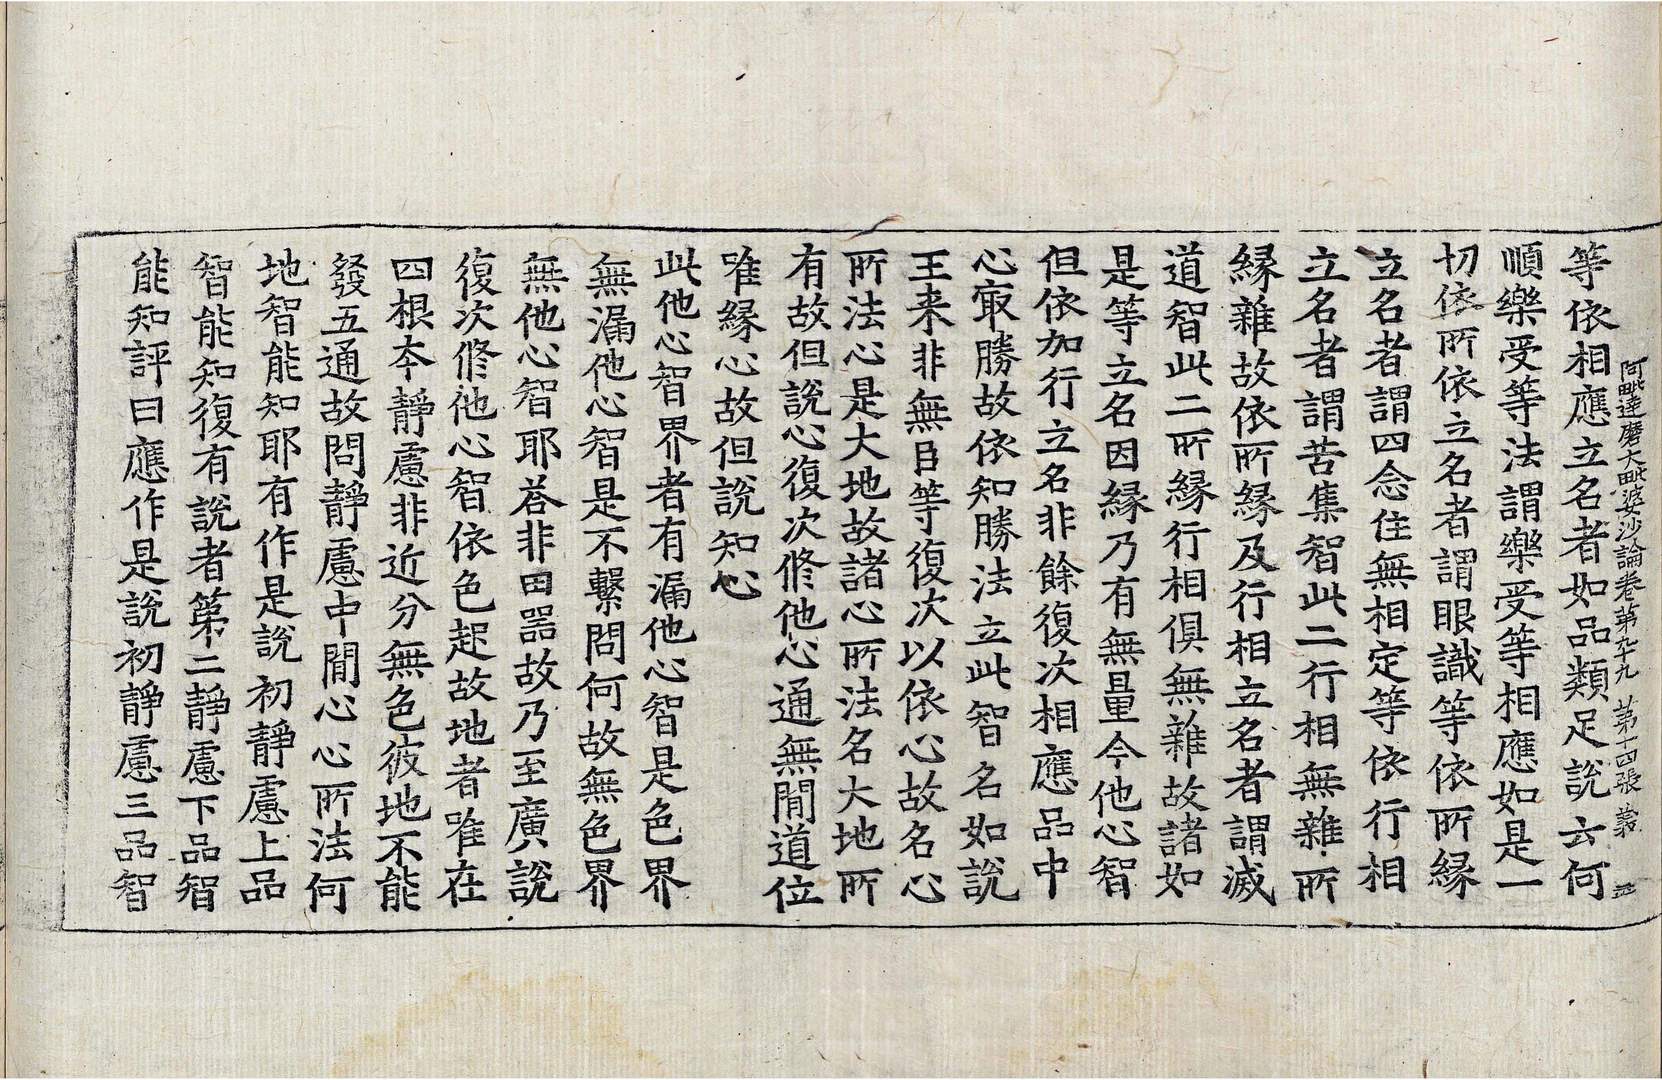 阿毗達磨大毗婆沙論卷第九十九 第十四張 
等依相應立名者如品類足說云何
順樂受等法謂樂受等相應如是一
切依所依立名者謂眼識等依所緣
立名者謂四念住無相定等依行相
立名者謂苦集智此二行相無雜所
緣雜故依所緣及行相立名者謂滅
道智此二所緣行相俱無雜故諸如
是等立名因緣乃有無量今他心智
但依加行立名非餘復次相應品中
心㝡勝故依知勝法立此智名如說
王来非無臣等復次以依心故名心
所法心是大地故諸心所法名大地所
有故但說心復次修他心通無間道位
唯緣心故但說知心
此他心智界者有漏他心智是色界
無漏他心智是不繫問何故無色界
無他心智耶荅非田器故乃至廣說
復次修他心智依色起故地者唯在
四根夲靜慮非近分無色彼地不能
發五通故問靜慮中間心心所法何
地智能知耶有作是說初靜慮上品
智能知復有說者第二靜慮下品智
能知評曰應作是說初靜慮三品智